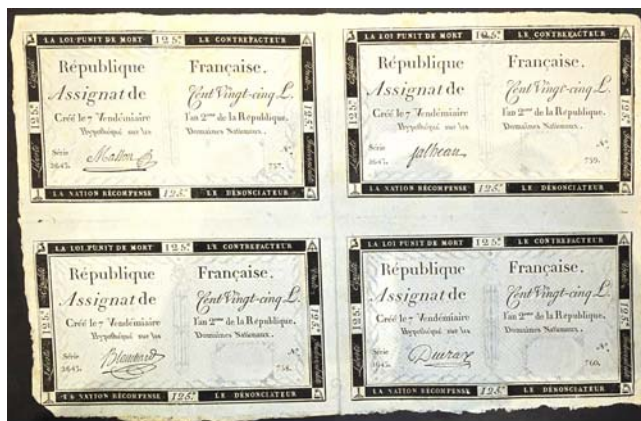 LA LOI PUNIT DE MORT 125.# LE CONTREFACTEUR
République Française.
Assignat de Cent Vingt-cinq L.
Créé le 7 Vendémiaire l'an 2.me de la République.
Hypothéqué sur les Domaines Nationaux.
Série N.o
2643. 757.
LA NATION RÉCOMPENSE 125.# LE DÉNONCIATEUR
LA LOI PUNIT DE MORT 125.# LE CONTREFACTEUR
République Française.
Assignat de Cent Vingt-cinq L.
Créé le 7 Vendémiaire l'an 2.me de la République.
Hypothéqué sur les Domaines Nationaux.
Série N.o
2643. jalheau 759.
LA NATION RÉCOMPENSE 125.# LE DÉNONCIATEUR
LA LOI PUNIT DE MORT 125.# LE CONTREFACTEUR
République Française.
Assignat de Cent Vingt-cinq L.
Créé le 7 Vendémiaire l'an 2.me de la République.
Hypothéqué sur les Domaines Nationaux.
Série N.o
2643. 758.
LA NATION RÉCOMPENSE 125.# LE DÉNONCIATEUR
LA LOI PUNIT DE MORT 125.# LE CONTREFACTEUR
République Française.
Assignat de Cent Vingt-cinq L.
Créé le 7 Vendémiaire l'an 2.me de la République.
Hypothéqué sur les Domaines Nationaux.
Série N.o
2643. 760.
LA NATION RÉCOMPENSE 125.# LE DÉNONCIATEUR